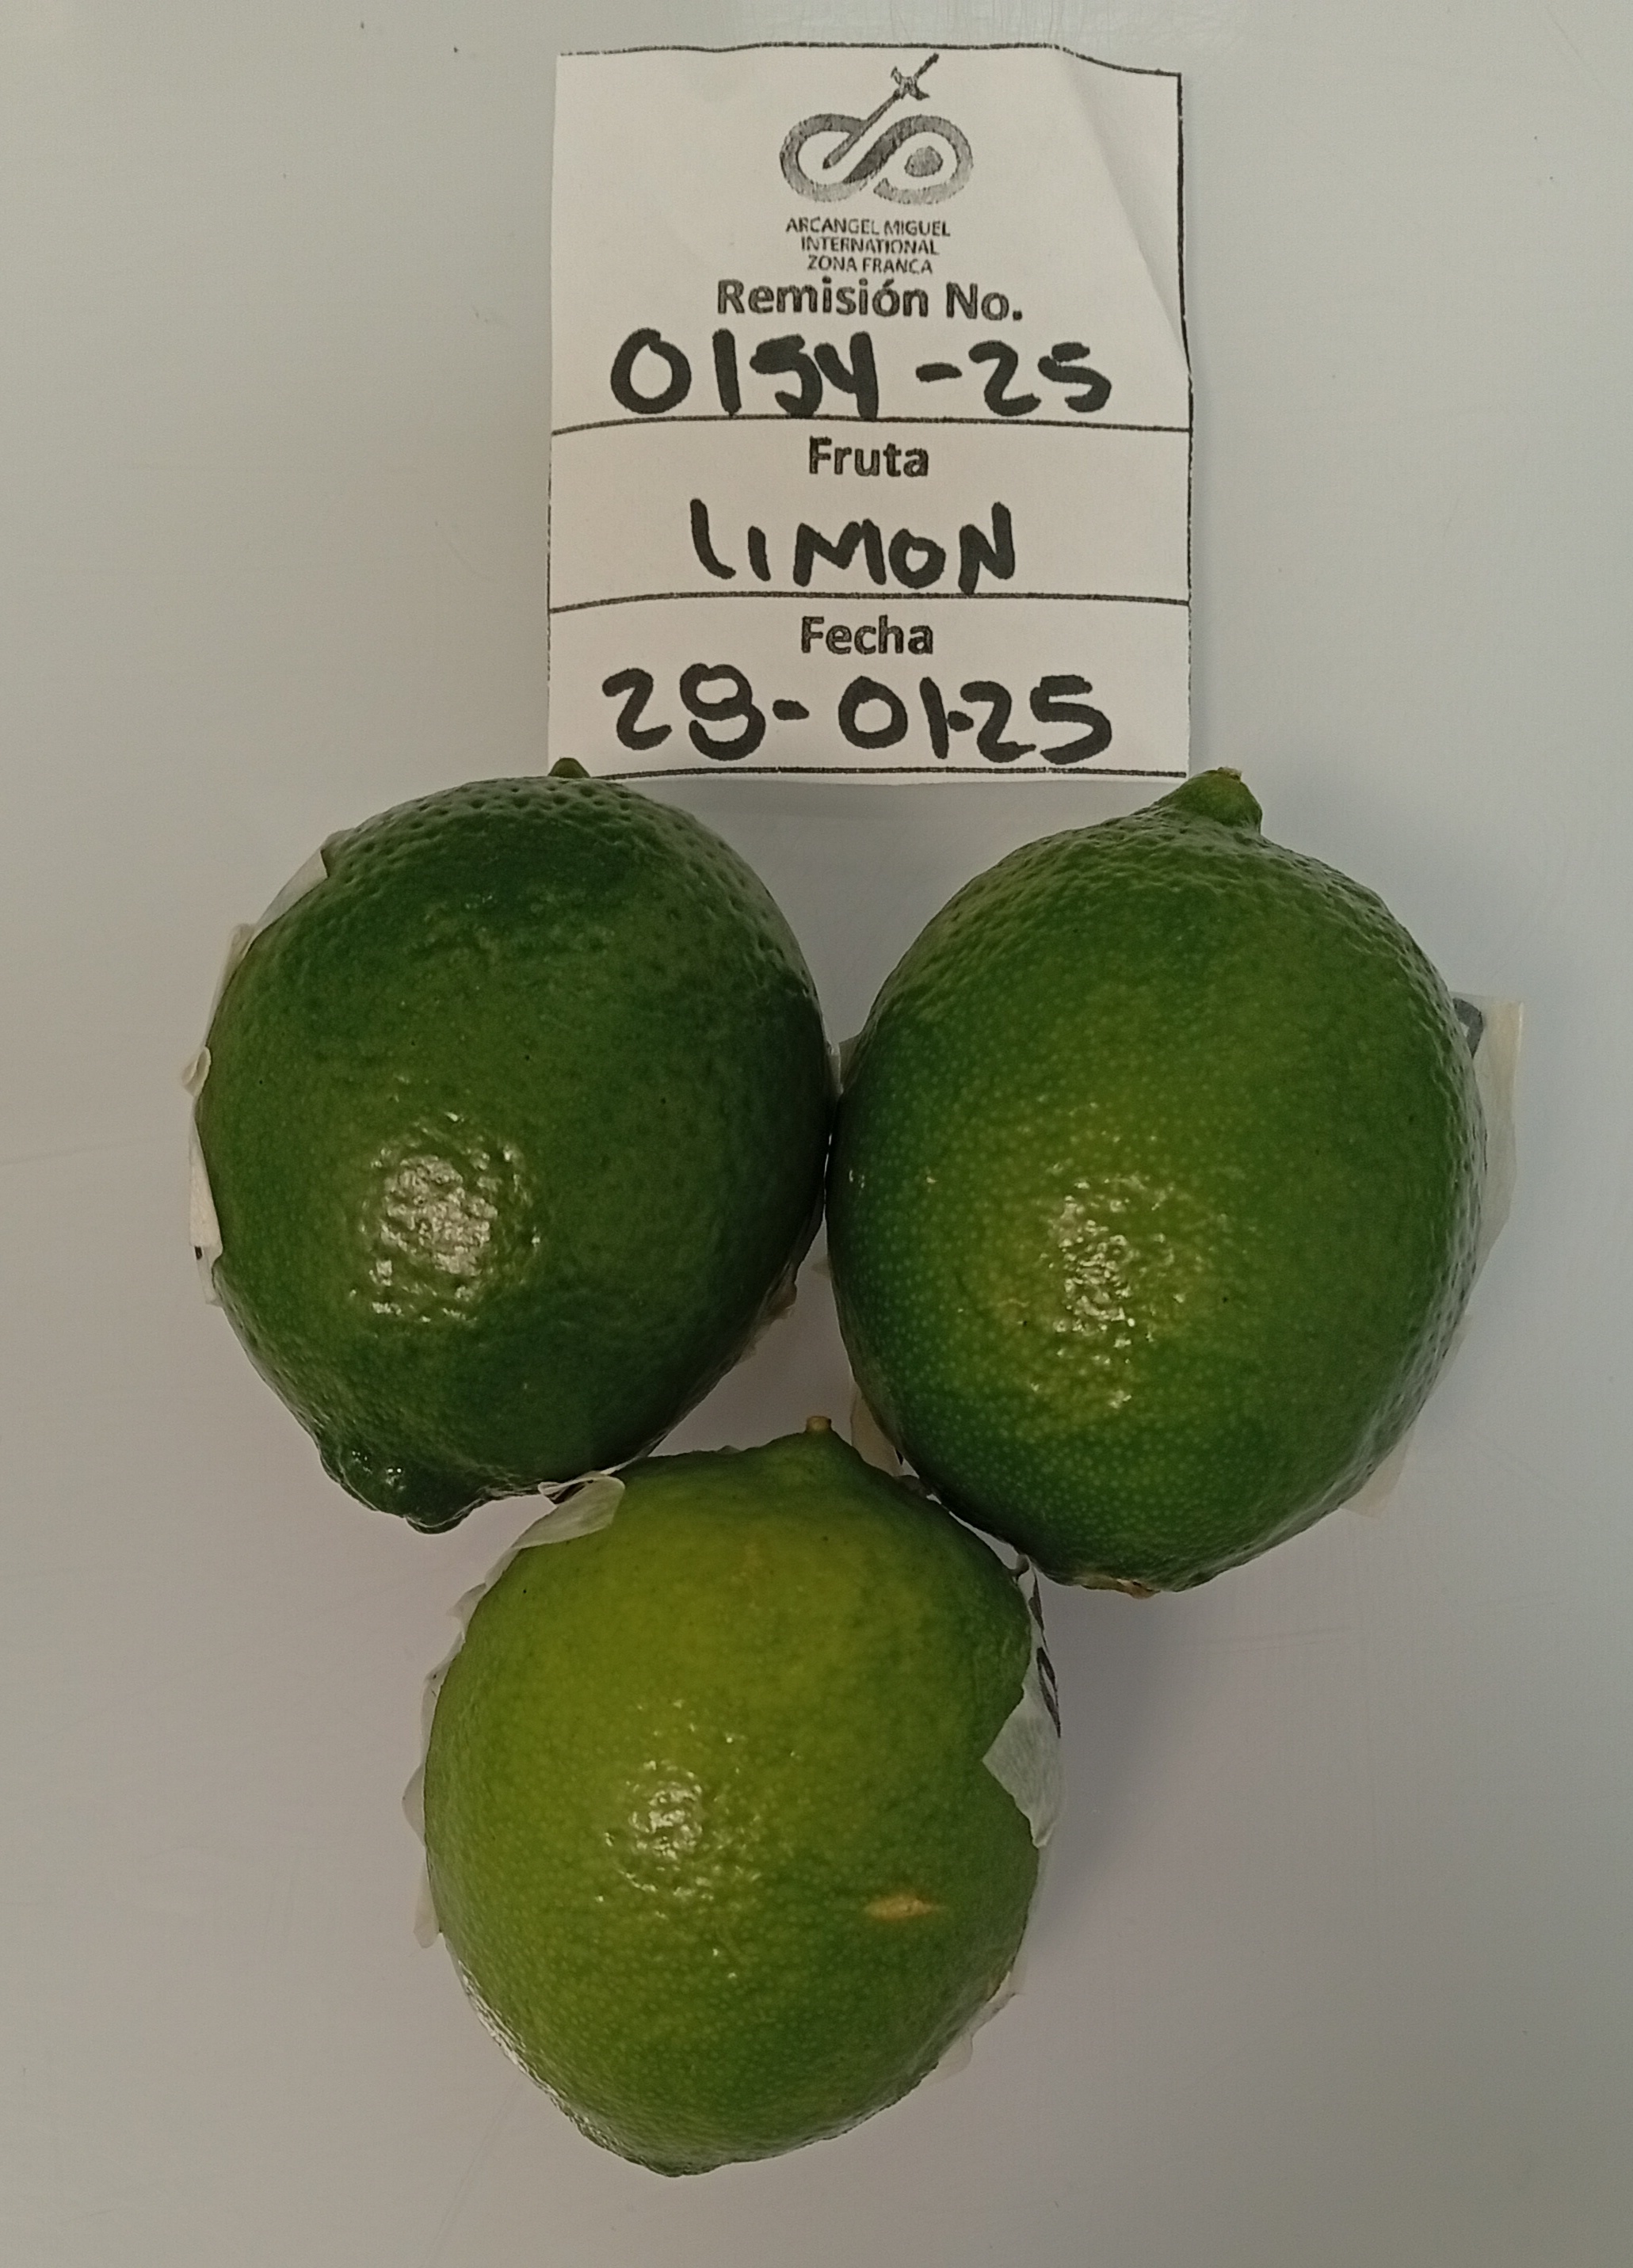 ARCANGEL MIGUEL
INTERNATIONAL
ZONA FRANCA
Remisión No.
0154-25
Fruta
LIMON
Fecha
28-01-25